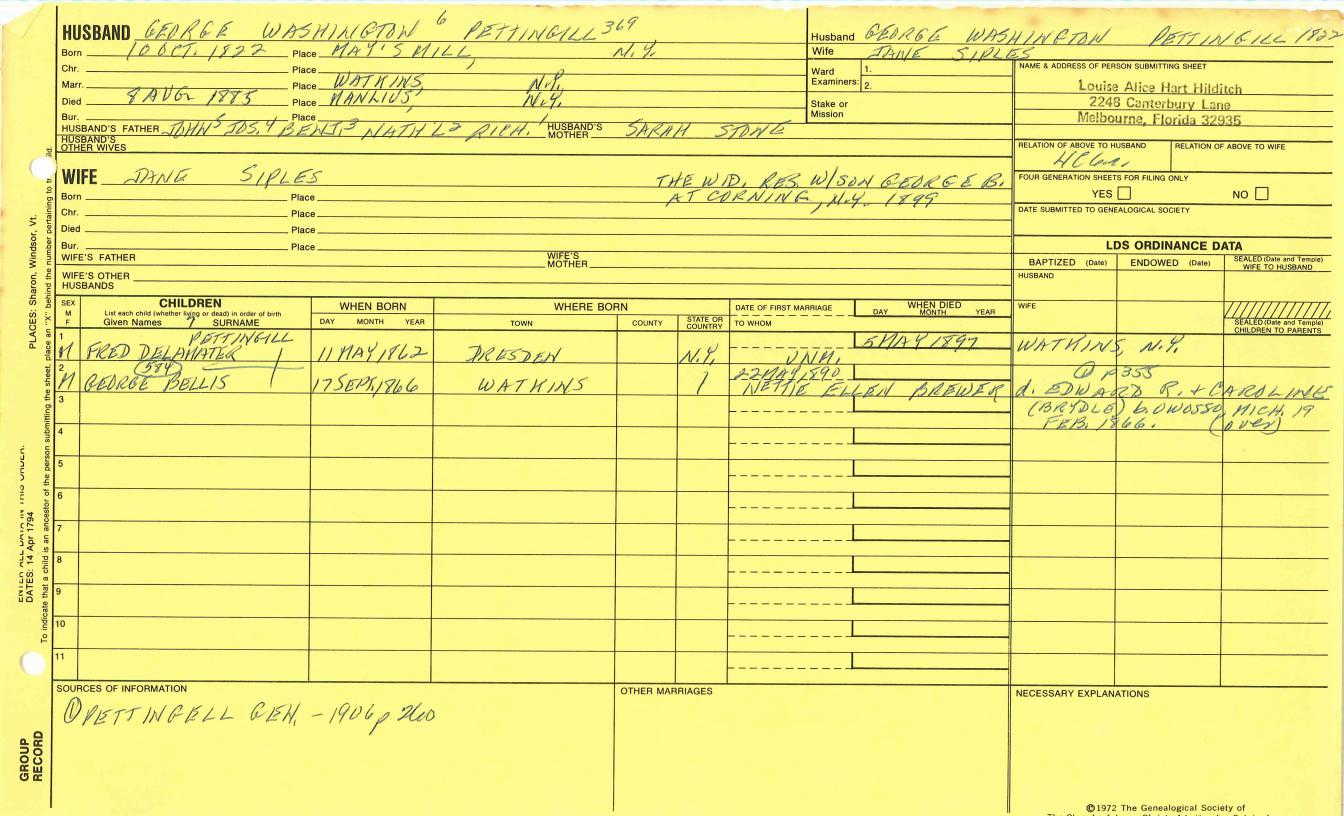 HUSBAND GEORGE WASHINGTON 6 PETTINGILL 369
Born 10 OCT. 1822 Place MAY'S MILL, N.Y.
Chr. Place
Marr. Place WATKINS, N.Y.
Died 8 AUG 1885 Place MANLIUS, N.Y.
Bur. Place
HUSBAND'S FATHER JOHN 5 JOS. 4 BENJ. 3 NATHL 2 RICH. 1 HUSBAND'S MOTHER SARAH STONE
HUSBAND'S OTHER WIVES
Husband GEORGE WASHINGTON PETTINGILL 1822
Wife JANE SIPLES
Ward Examiners: 1.
2.
Stake or Mission
NAME & ADDRESS OF PERSON SUBMITTING SHEET
Louise Alice Hart Hilditch
2248 Canterbury Lane
Melbourne, Florida 32935
RELATION OF ABOVE TO HUSBAND RELATION OF ABOVE TO WIFE
FOUR GENERATION SHEETS FOR FILING ONLY
YES NO
DATE SUBMITTED TO GENEALOGICAL SOCIETY
WIFE JANE SIPLES THE WID. RES. W/SON GEORGE B.
AT CORNING, N.Y. 1899
Born Place
Chr. Place
Died Place
Bur. Place
WIFE'S FATHER WIFE'S MOTHER
WIFE'S OTHER HUSBANDS
LDS ORDINANCE DATA
BAPTIZED (Date) ENDOWED (Date) SEALED (Date and Temple) WIFE TO HUSBAND
HUSBAND
WIFE
SEALED (Date and Temple) CHILDREN TO PARENTS
SEX M F CHILDREN WHEN BORN WHERE BORN DATE OF FIRST MARRIAGE WHEN DIED
List each child (whether living or dead) in order of birth
Given Names 7 SURNAME DAY MONTH YEAR TOWN COUNTY STATE OR COUNTRY TO WHOM DAY MONTH YEAR
1 M FRED DELAMATER PETTINGILL 11 MAY 1862 DRESDEN N.Y. UNM. 5 MAY 1897 WATKINS, N.Y.
2 M (584) GEORGE BELLIS 17 SEPT, 1866 WATKINS 22 MAY, 1890 NETTIE ELLEN BREWER
① p 355
d. EDWARD R. + CAROLINE
(BRYDLE) b. OWOSSO, MICH. 19
FEB. 1866. (over)
3
4
5
6
7
8
9
10
11
SOURCES OF INFORMATION
① PETTINGELL GEN. - 1906 p 260
OTHER MARRIAGES
NECESSARY EXPLANATIONS
©1972 The Genealogical Society of
PLACES: Sharon, Windsor, Vt.
DATES: 14 Apr 1794
ENTER ALL DATA IN THIS ORDER:
To indicate that a child is an ancestor of the person submitting the sheet, place an "X" behind the number pertaining to
GROUP RECORD